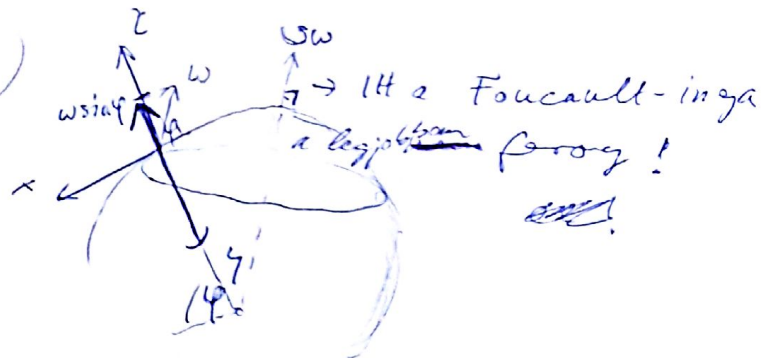 z
ω
ω
ω sin φ
→ itt a Foucault-inga
x
a legjobban forog!
y
φ